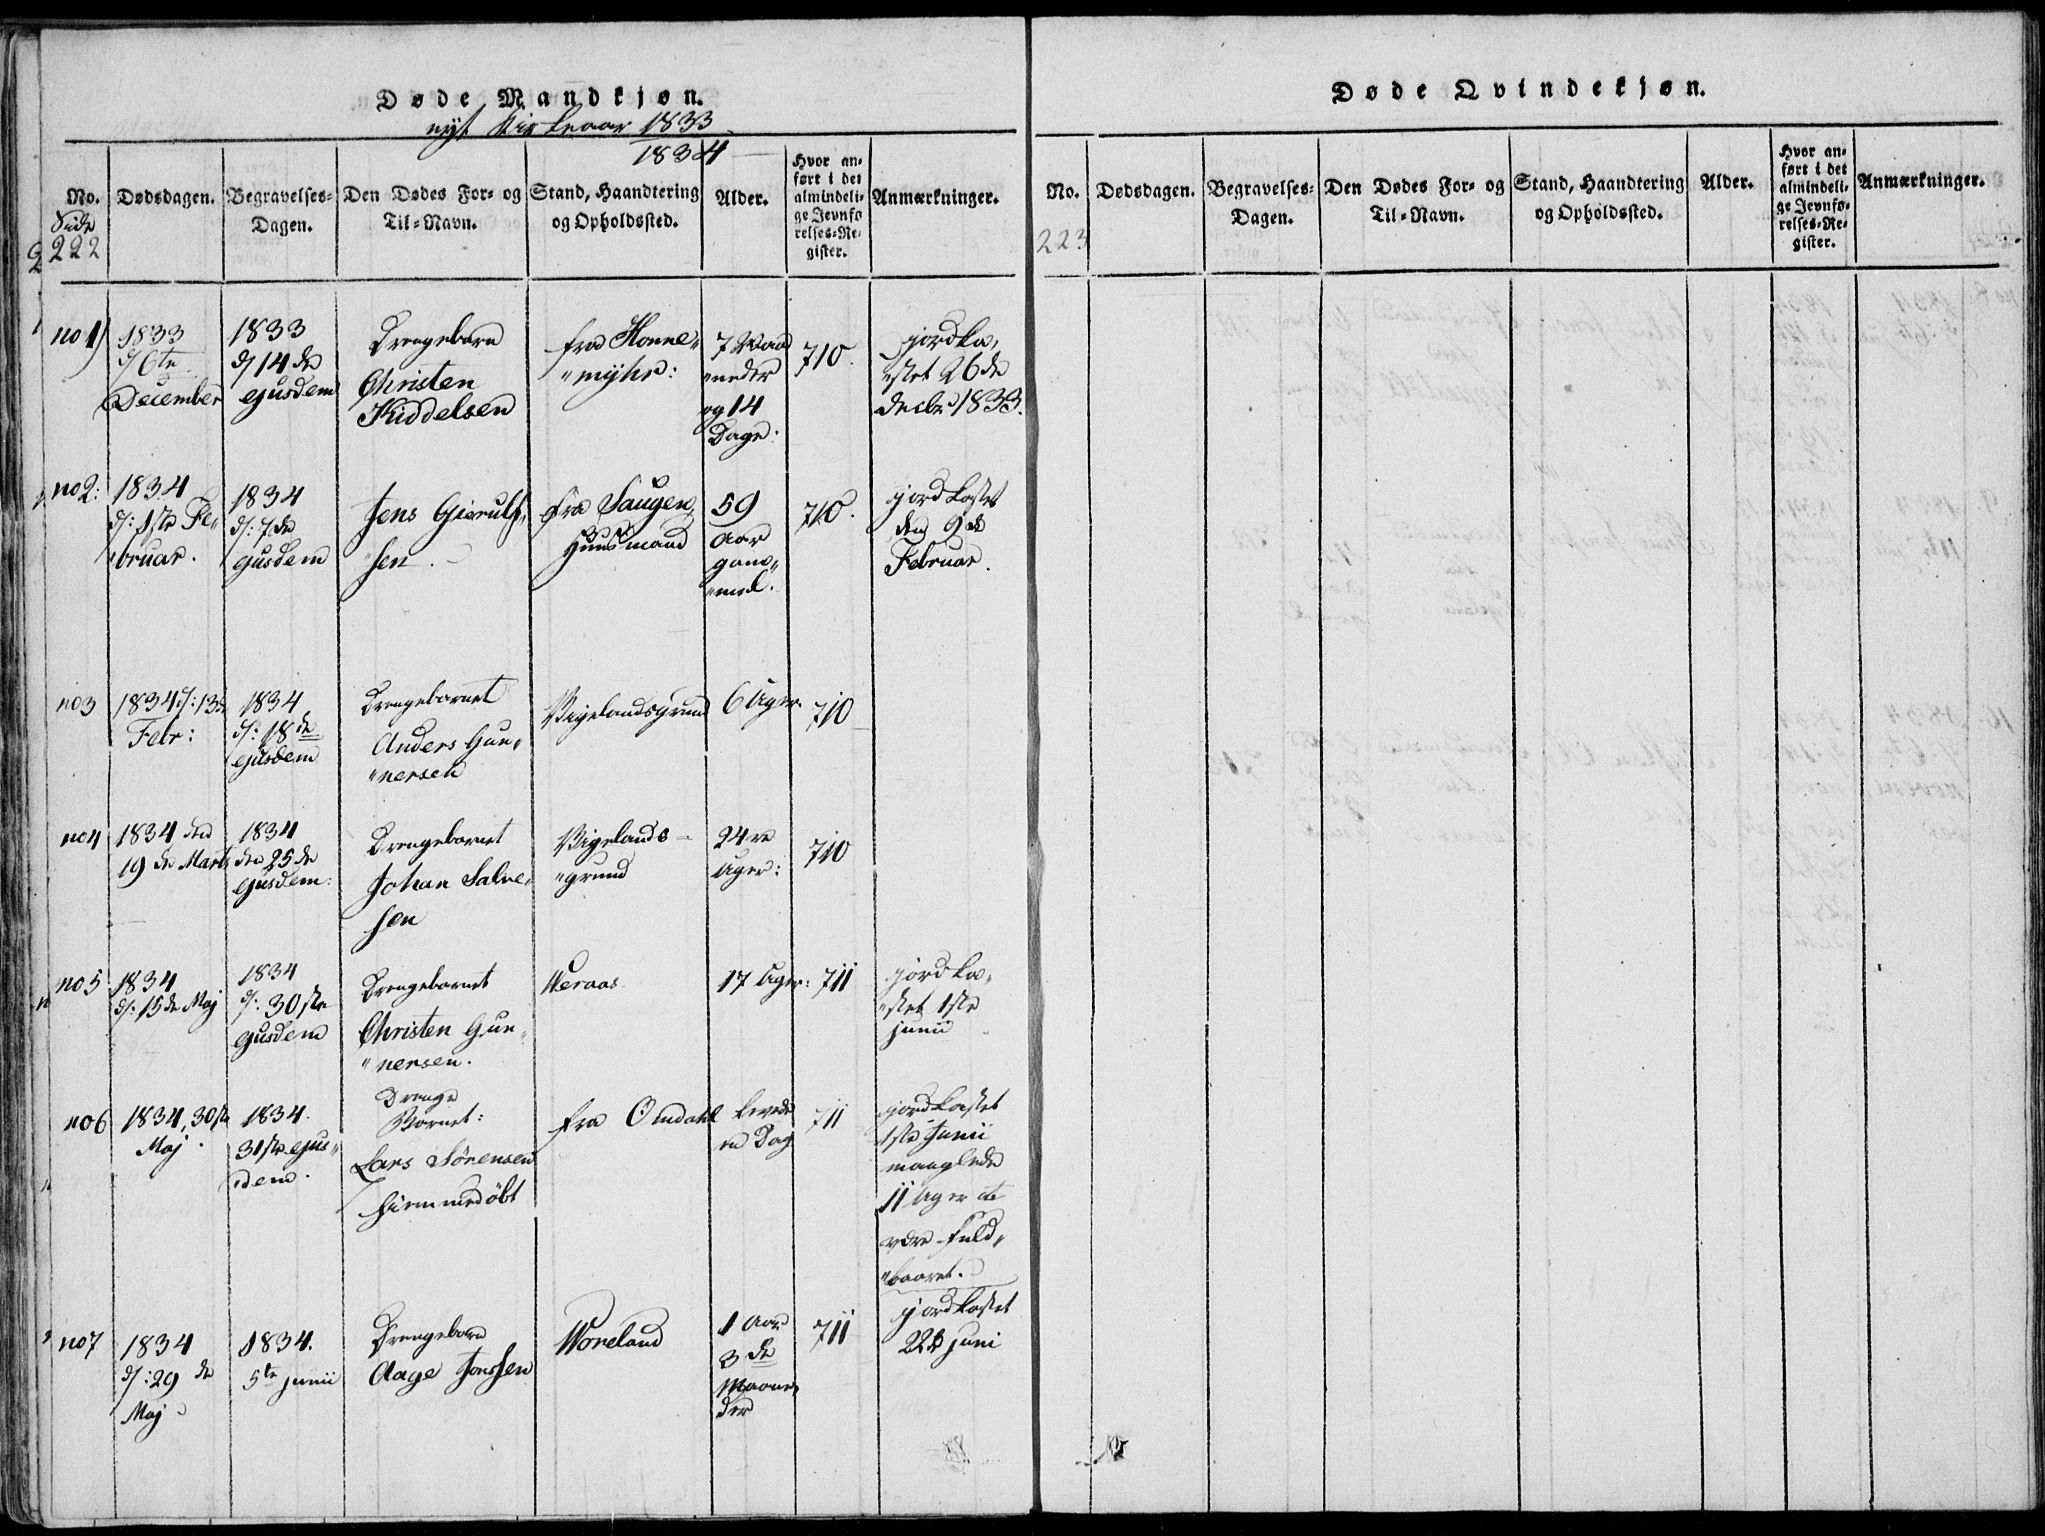 Døde Mandkjøn.
nyt Kirkeaar 1833
1834
No. Dødsdagen. Begravelses-Dagen. Den Dødes For- og Til-Navn. Stand, Haandtering og Opholdssted. Alder. Hvor anført i det almindelige Jevnførelses-Register. Anmærkninger.
Side
222
no 1)
1833
d/ 6te
December
1833
d/ 14 de
ejusdem
Drengebarn
Christen
Kiddelsen
fra Honne„
„myhr:
7 Maa
„neder
og 14
Dage:
710.
jordka„
„stet 26 de
decbr 1833.
no 2:
1834
d/: 1ste Fe„
„bruar.
1834
d/: 7 de
ejusdem
Jens Gierulf„
„sen.
fra Saugen,
Huusmand
59
Aar
gam„
„mel.
710.
jordkastet
den 9 de
Februar.
no 3
1834 d/: 13 de
Febr:
1834
d/: 18 de
ejusdem
Drengebarnet
Anders Gun„
„nersen
Vigelandsgrund
6 Uger.
710
no 4
1834 den
19 de Marts
1834
den 25 de
ejusdem:
Drengebarnet
Johan Salve„
sen
Vigelands
„grund
24 re
Uger:
710
no 5
1834
d/: 15 de Maj
1834
d/: 30 ste
ejusdem
Drengebarnet
Christen Gun„
„nersen.
Weraas
17 Uger:
711
jordka„
„stet 1ste
junii
no 6
1834, 30 ste
Maj.
1834.
31 ste ejus„
„dem.
Drenge
Barnet:
Lars Sørensen
hiemmedøbt
fra Omdahl
levede
en Dag
711
jordkastet
1ste Junii
manglede
11 Uger at
være fuld„
„baaret.
no 7
1834
d/: 29 de
Maj
1834.
5te junii
Drengebarn
Aage Jonssen
Woreland
1 Aar
3 de
Maane„
der
711
jordkastet
22 juni
Døde Qvindekjøn.
No. Dødsdagen. Begravelses-Dagen. Den Dødes For- og Til-Navn. Stand, Haandtering og Opholdssted. Alder. Hvor anført i det almindelige Jevnførelses-Register. Anmærkninger.
223